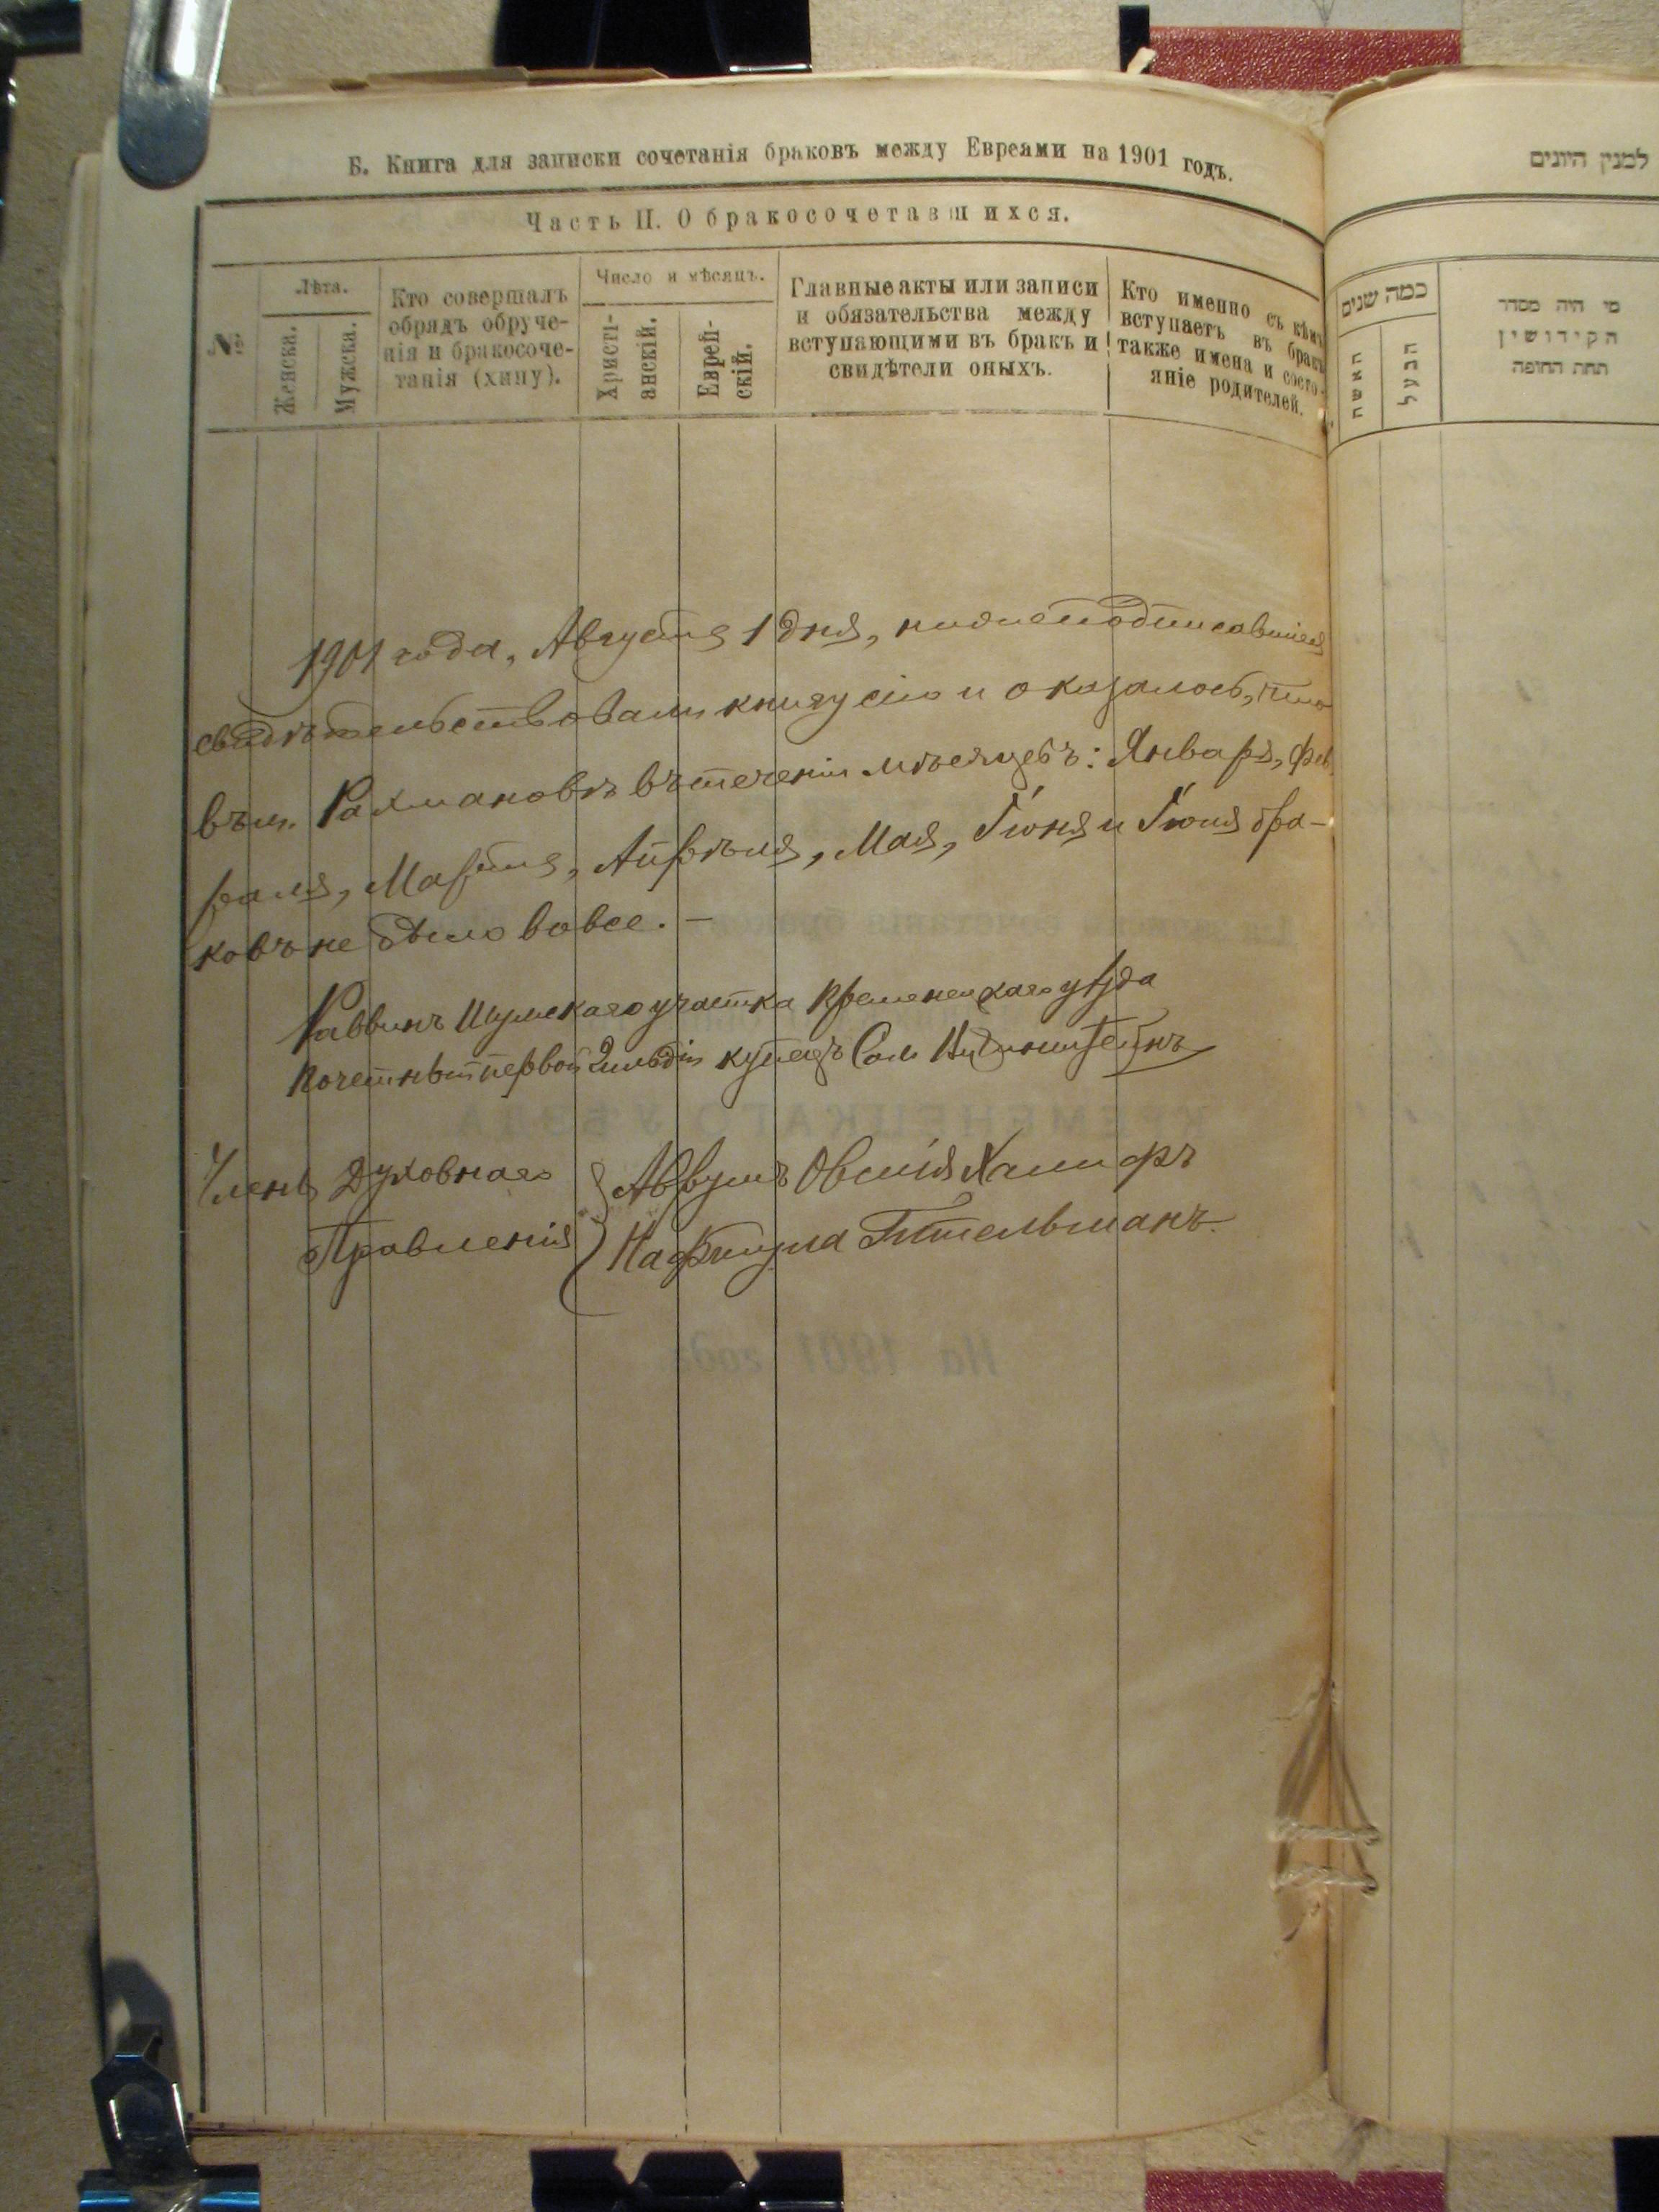 Б. Книга для записки сочетанія браковъ между Евреями на 1901 годъ.
Часть II. О бракосочетавшихся.
№
Лѣта.
Женска.
Мужска.
Кто совершалъ
обрядъ обруче-
нія и бракосоче-
танія (хипу).
Число и мѣсяцъ.
Христі-
анскій.
Еврей-
скій.
Главные акты или записи
и обязательства между
вступающими въ бракъ и
свидѣтели оныхъ.
Кто именно съ кѣмъ
вступаетъ въ бракъ
также имена и состо-
яніе родителей.
1901 года, Августа 1 дня, нижеподписавшіеся
свидѣтельствовали книгу сію и оказалось, что
въ м. Рахмановѣ въ теченіи мѣсяцевъ: Января, Фев
раля, Марта, Апрѣля, Мая, Іюня и Іюля бра-
ковъ не было вовсе. —
Раввинъ Шумскаго участка Кременецкаго уѣзда
почетный первой Гильдіи купецъ
Члены Духовнаго
Правленія
Аврумъ Овшія
Нафтула Гительманъ.
למנין היונים
כמה שנים
האשה
הבעל
מי היה מסדר
הקידושין
תחת החופה
КРЕМЕНЕЦКАГО УѢЗДА
На 1901 годъ